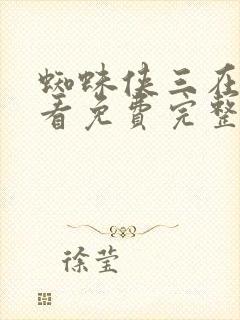 蜘蛛侠三在
看免费完整
徐莹